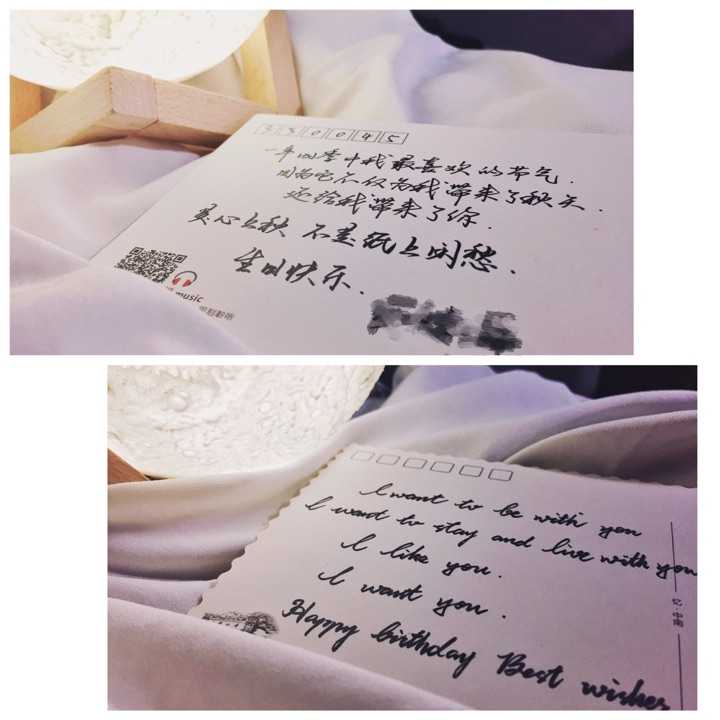 330045
一年四季中我最喜欢的节气.
因为它不仅为我带来了秋天.
还给我带来了你.
是心上秋 不是纸上闲愁.
生日快乐.
music
I want to be with you
I want to stay and live with you
I like you.
I want you.
Happy birthday Best wishes
忆·中南